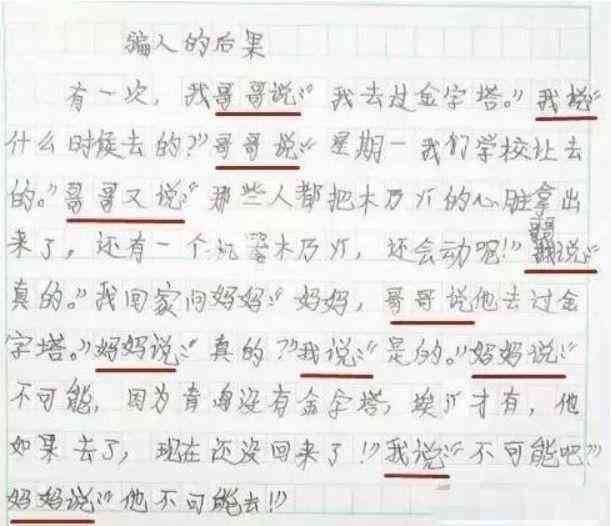 骗人的后果
有一次，我哥哥说：“我去过金字塔。”我说：“
什么时候去的？”哥哥说：“星期一我们学校让去
的。”哥哥又说：“那些人都把木乃亣的心脏拿出
来了，还有一个机器木乃亣，还会动呢！”哥哥我说：“
真的。”我回家问妈妈：“妈妈，哥哥说他去过金
字塔。”妈妈说：“真的？”我说：“是的。”妈妈说：“
不可能，因为青海没有金字塔，埃及才有，他
如果去了，现在还没回来了！”我说：“不可能吧？”
妈妈说：“他不可能去！”